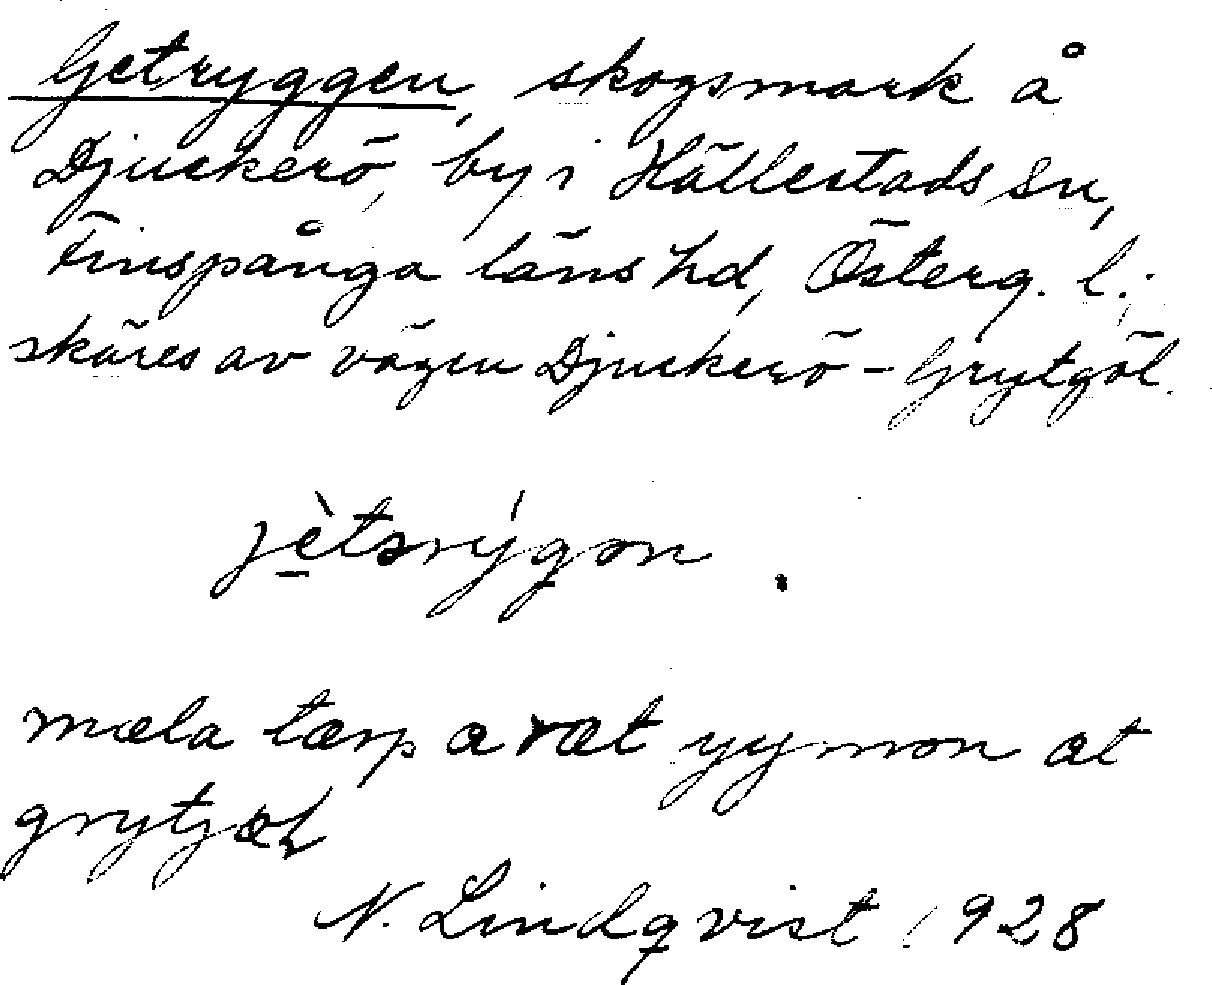 Getryggen, skogsmark å
Djuckerö, by i Hällestads sn,
Finspånga läns hd, Österg. l.;
skäres av vägen Djuckerö - Grytgöl.
jètsrýgon.
mæla tærp a ræt yymon at
grytjæl
N. Lindqvist 1928